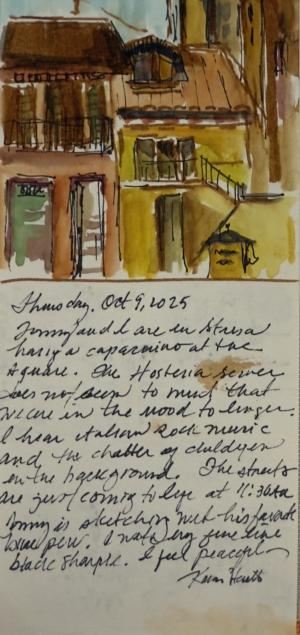 Thursday, Oct 9, 2025
Tommy and I are in Stresa
having a capaccino at the
square. The Hosteria server
does not seem to mind that
we are in the mood to linger.
I hear Italian Rock music
and the chatter of children
in the background. The streets
are just coming to life at 11:30AM
Tommy is sketching with his favorite
pen. I with my fine line
black Sharpie. I feel peaceful
Karen